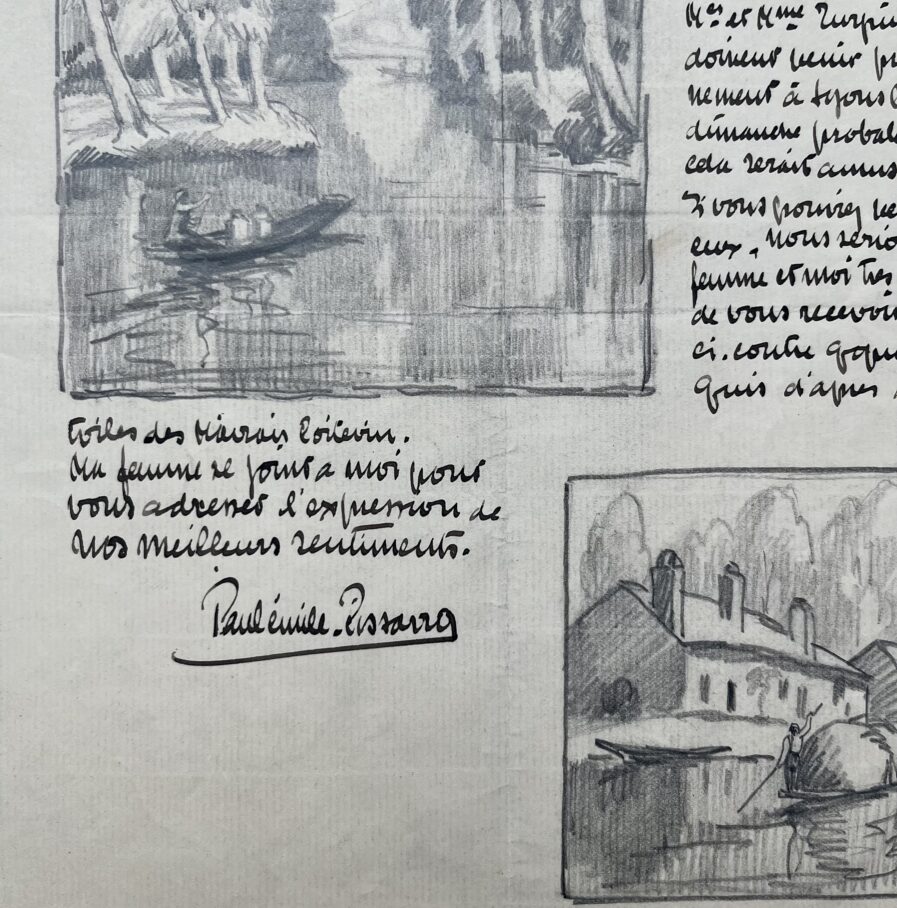 Mes et Mme Turpin
doivent venir
nement à Lyons
dimanche
cela serait
Si vous pouviez
eux, nous
femme et moi très
de vous recevoir
ci-contre
quis d'après
toiles des Marais Poitevin.
Ma femme se joint a moi pour
vous adresser l'expression de
nos meilleurs sentiments.
Paulémile-Pissarro